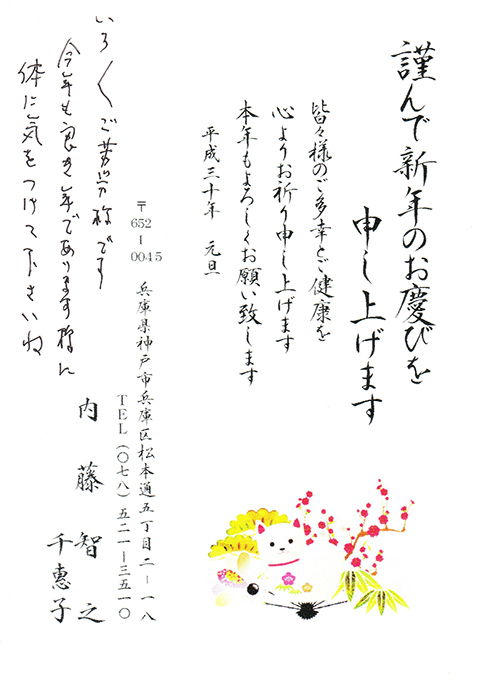 謹んで新年のお慶びを
申し上げます
皆々様のご多幸とご健康を
心よりお祈り申し上げます
本年もよろしくお願い致します
平成三十年 元旦
〒652-0045
兵庫県神戸市兵庫区松本通五丁目二-一八
TEL(〇七八)五二一-三五一〇
内藤智之
千惠子
いろ〱ご苦労様です
今年も良き年であります様に
体に気をつけて下さいね